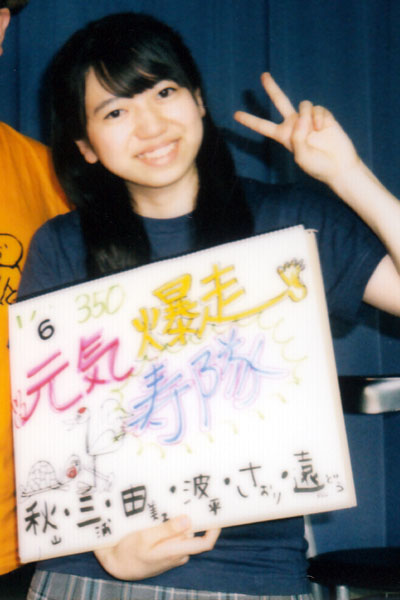 6 350
元気爆走
寿隊
秋山・三浦・田・波平・さおり・遠どう